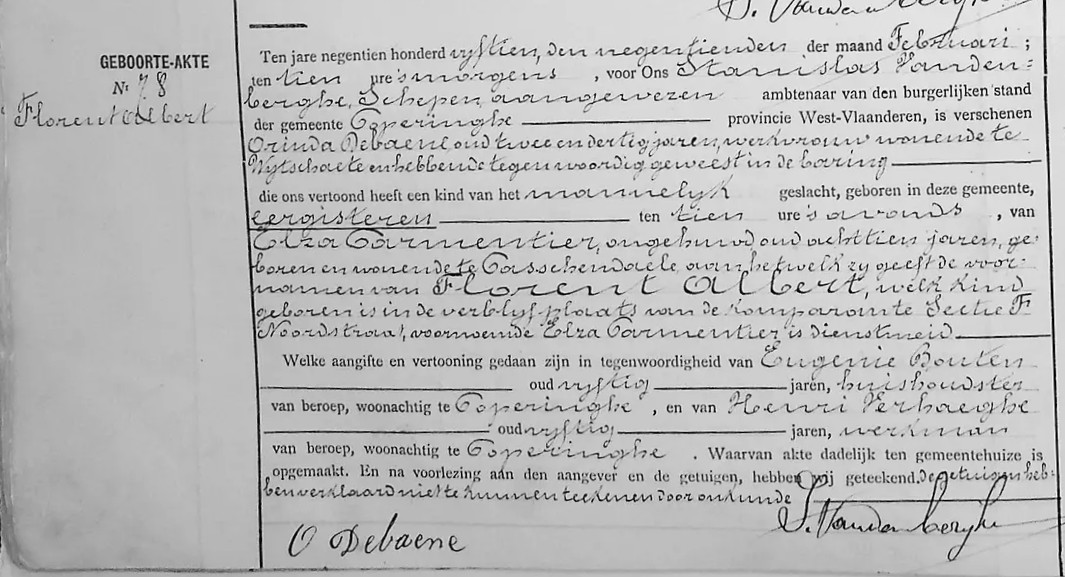 S. Vandenberghe
GEBOORTE-AKTE
Nr 78
Florent Albert
Ten jare negentien honderd vyftien, den negentienden der maand Februari ;
ten tien ure 's morgens , voor Ons Stanislas Vanden=
berghe, Schepen, aangewezen ambtenaar van den burgerlijken stand
der gemeente Poperinghe provincie West-Vlaanderen, is verschenen
Orinda Debaene, oud twee en dertig jaren, werkvrouw wonende te
Wytschaete en hebbende tegenwoordig geweest in de baring
die ons vertoond heeft een kind van het mannelyk geslacht, geboren in deze gemeente,
eergisteren ten tien ure 's avonds , van
Elza Parmentier, ongehuwd, oud achttien jaren, ge=
boren en wonende te Passchendaele aan hetwelk zy geeft de voor=
namen van Florent Albert, welk kind
geboren is in de verblyfplaats van de komparante Sectie F
Noordstraat, voornoemde Elza Parmentier is dienstmeid
Welke aangifte en vertooning gedaan zijn in tegenwoordigheid van Eugenie Bouten
oud vyftig jaren, huishoudster
van beroep, woonachtig te Poperinghe , en van Henri Verhaeghe
oud vyftig jaren, werkman
van beroep, woonachtig te Poperinghe . Waarvan akte dadelijk ten gemeentehuize is
opgemaakt. En na voorlezing aan den aangever en de getuigen, hebben wij geteekend. De getuigen heb=
ben verklaard niet te kunnen teekenen door onkunde
S. Vandenberghe
O Debaene